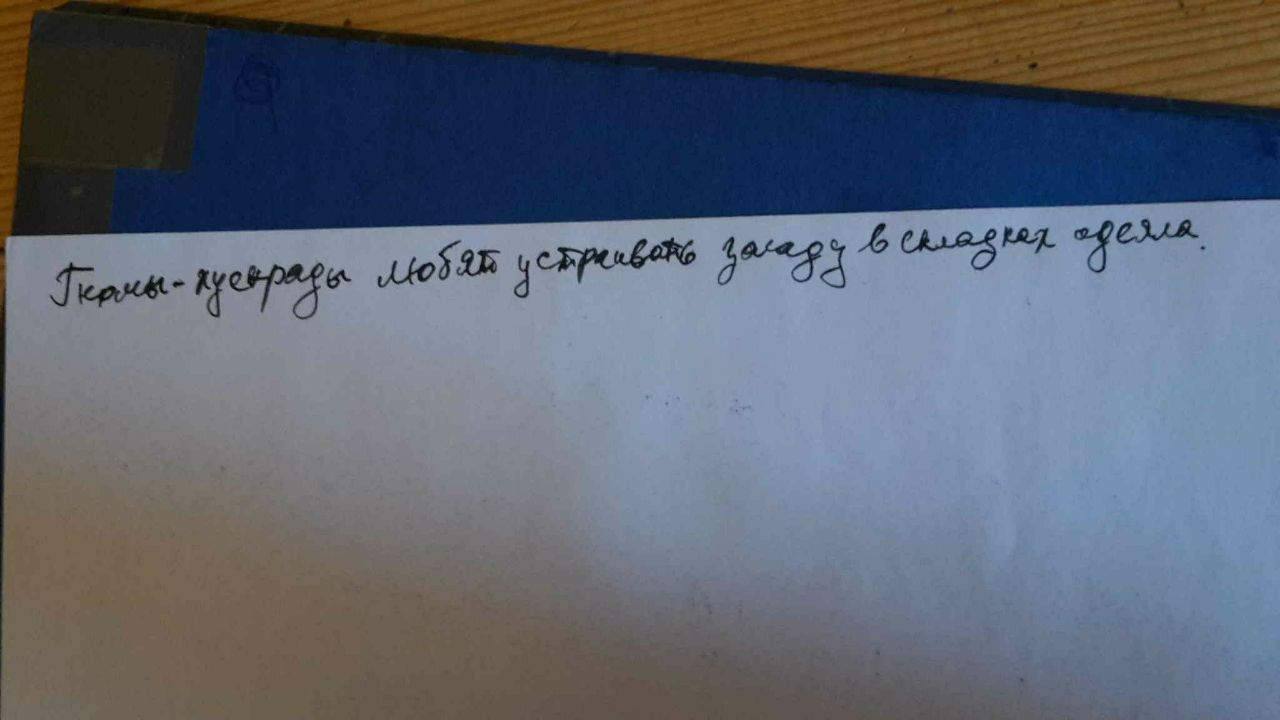 Гкамы-хускрады любят устраивать засаду в складках одеяла.